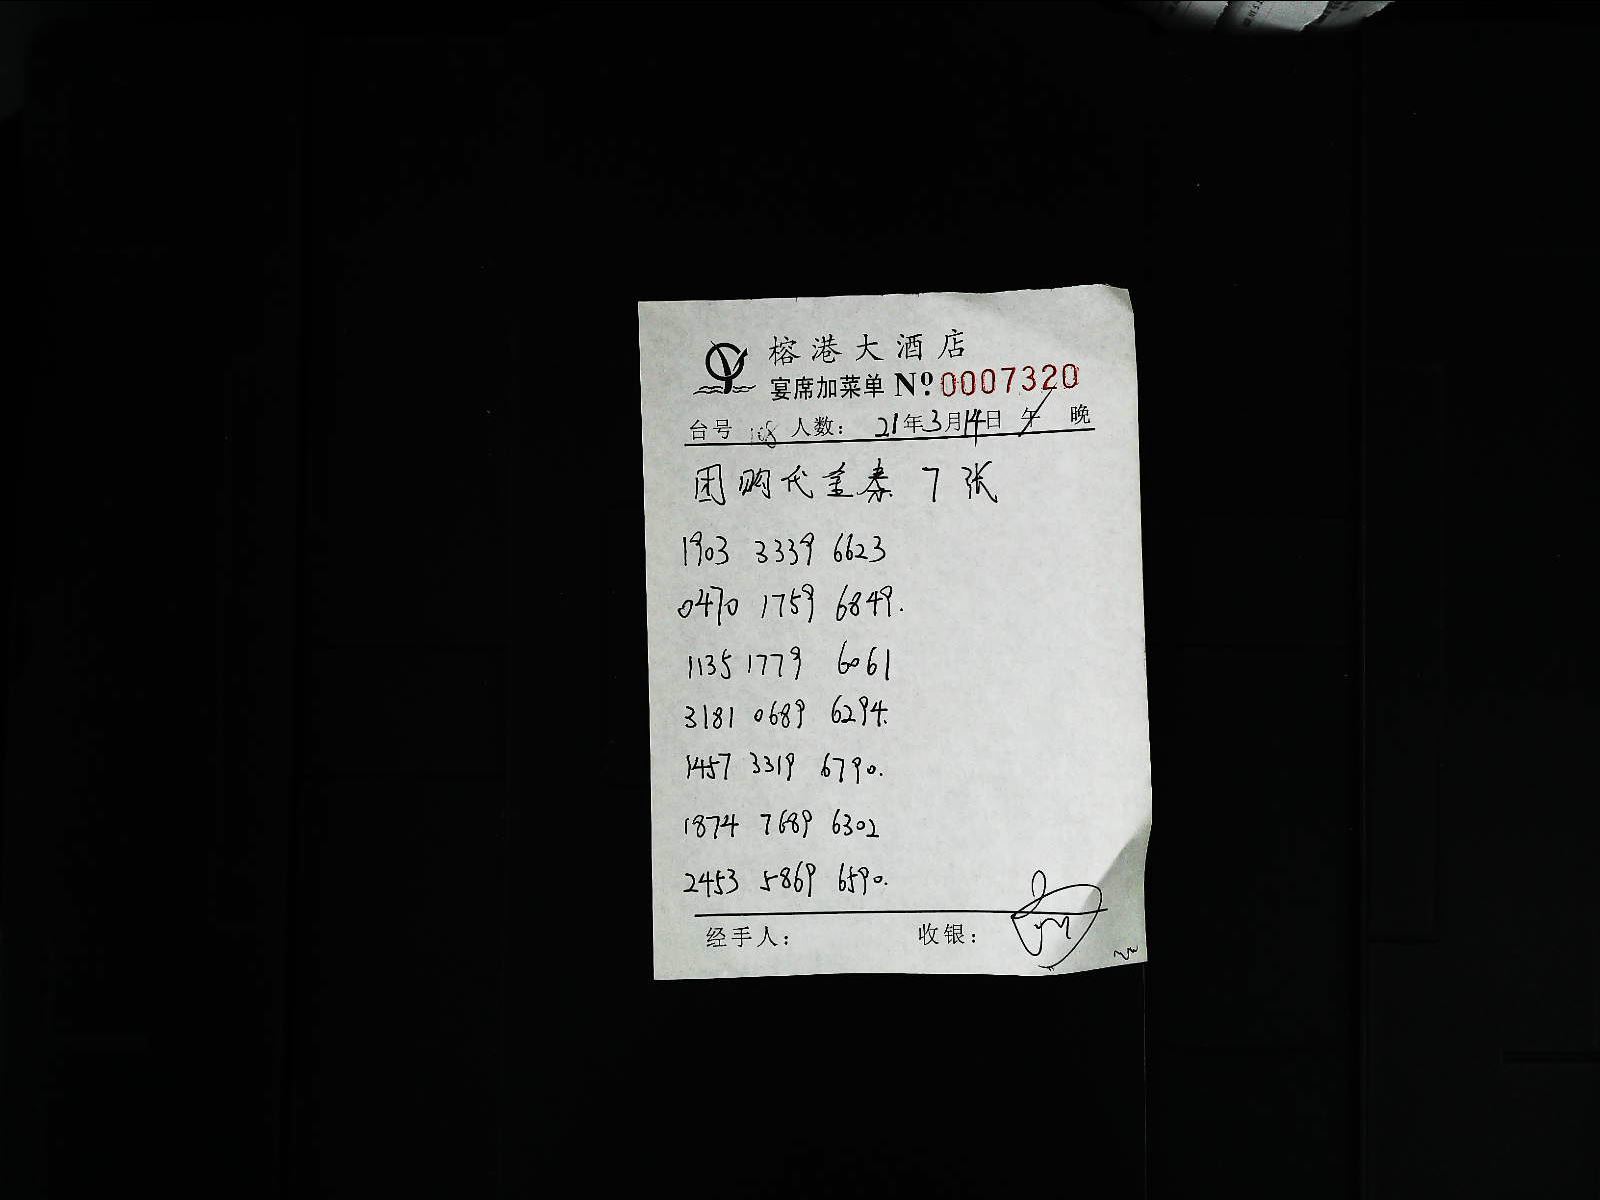 榕港大酒店
宴席加菜单 Nº.0007320
台号 108 人数： 21年3月14日 午 晚
团购代金券 7 张
1903 3339 6623
0470 1759 6849.
1135 1779 6061
3181 0689 6294.
1457 3319 6790.
1874 7689 6302
2453 5869 6590.
经手人： 收银：